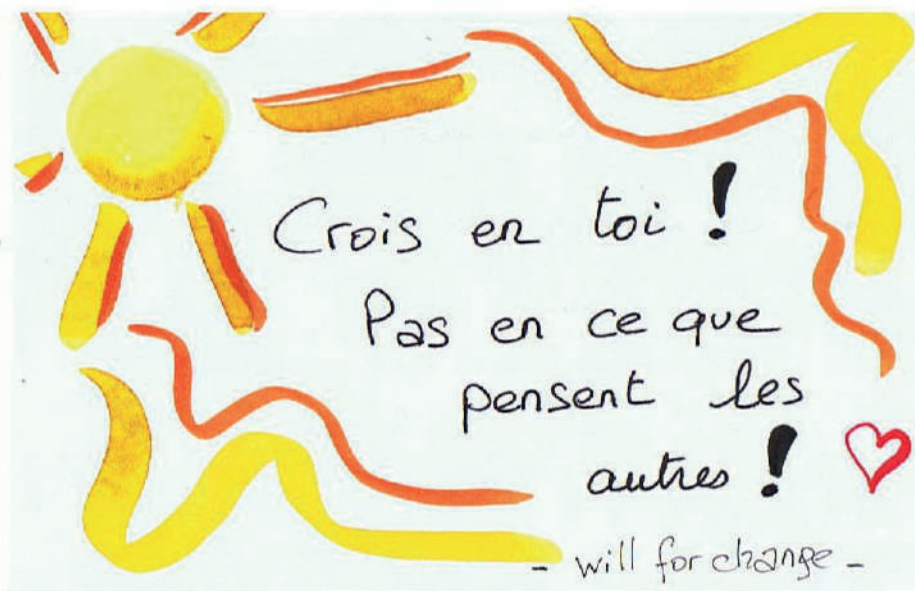 Crois en toi !
Pas en ce que
pensent les
autres !
- will for change -